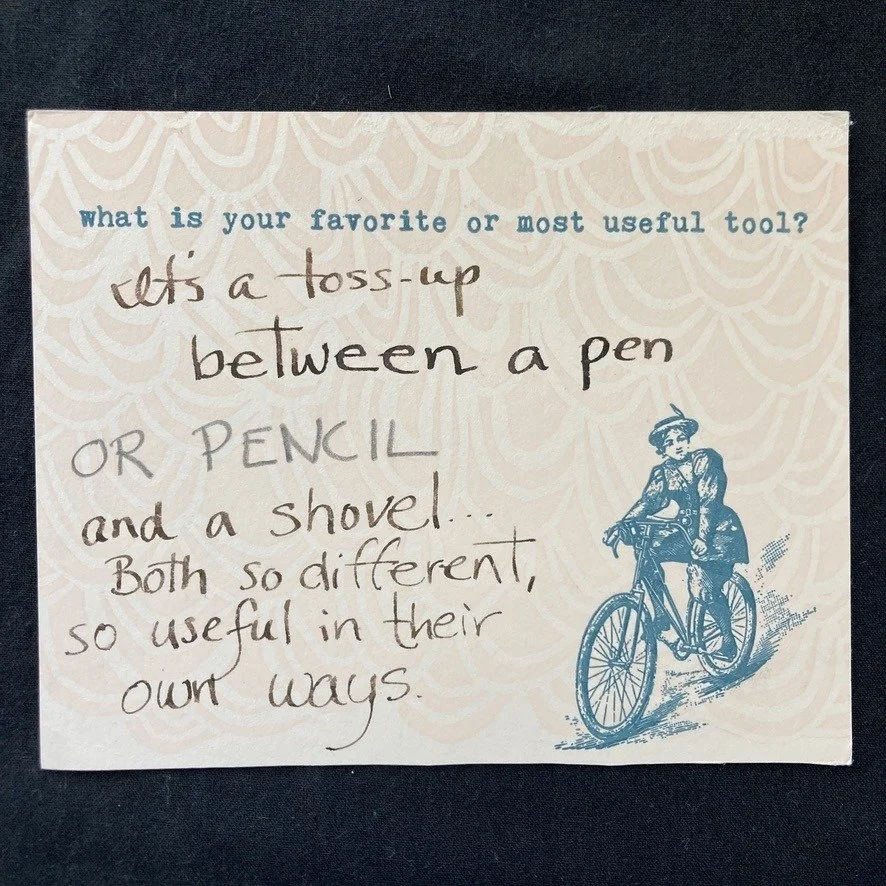 what is your favorite or most useful tool?
It's a toss-up
between a pen
OR PENCIL
and a shovel...
Both so different,
so useful in their
own ways.